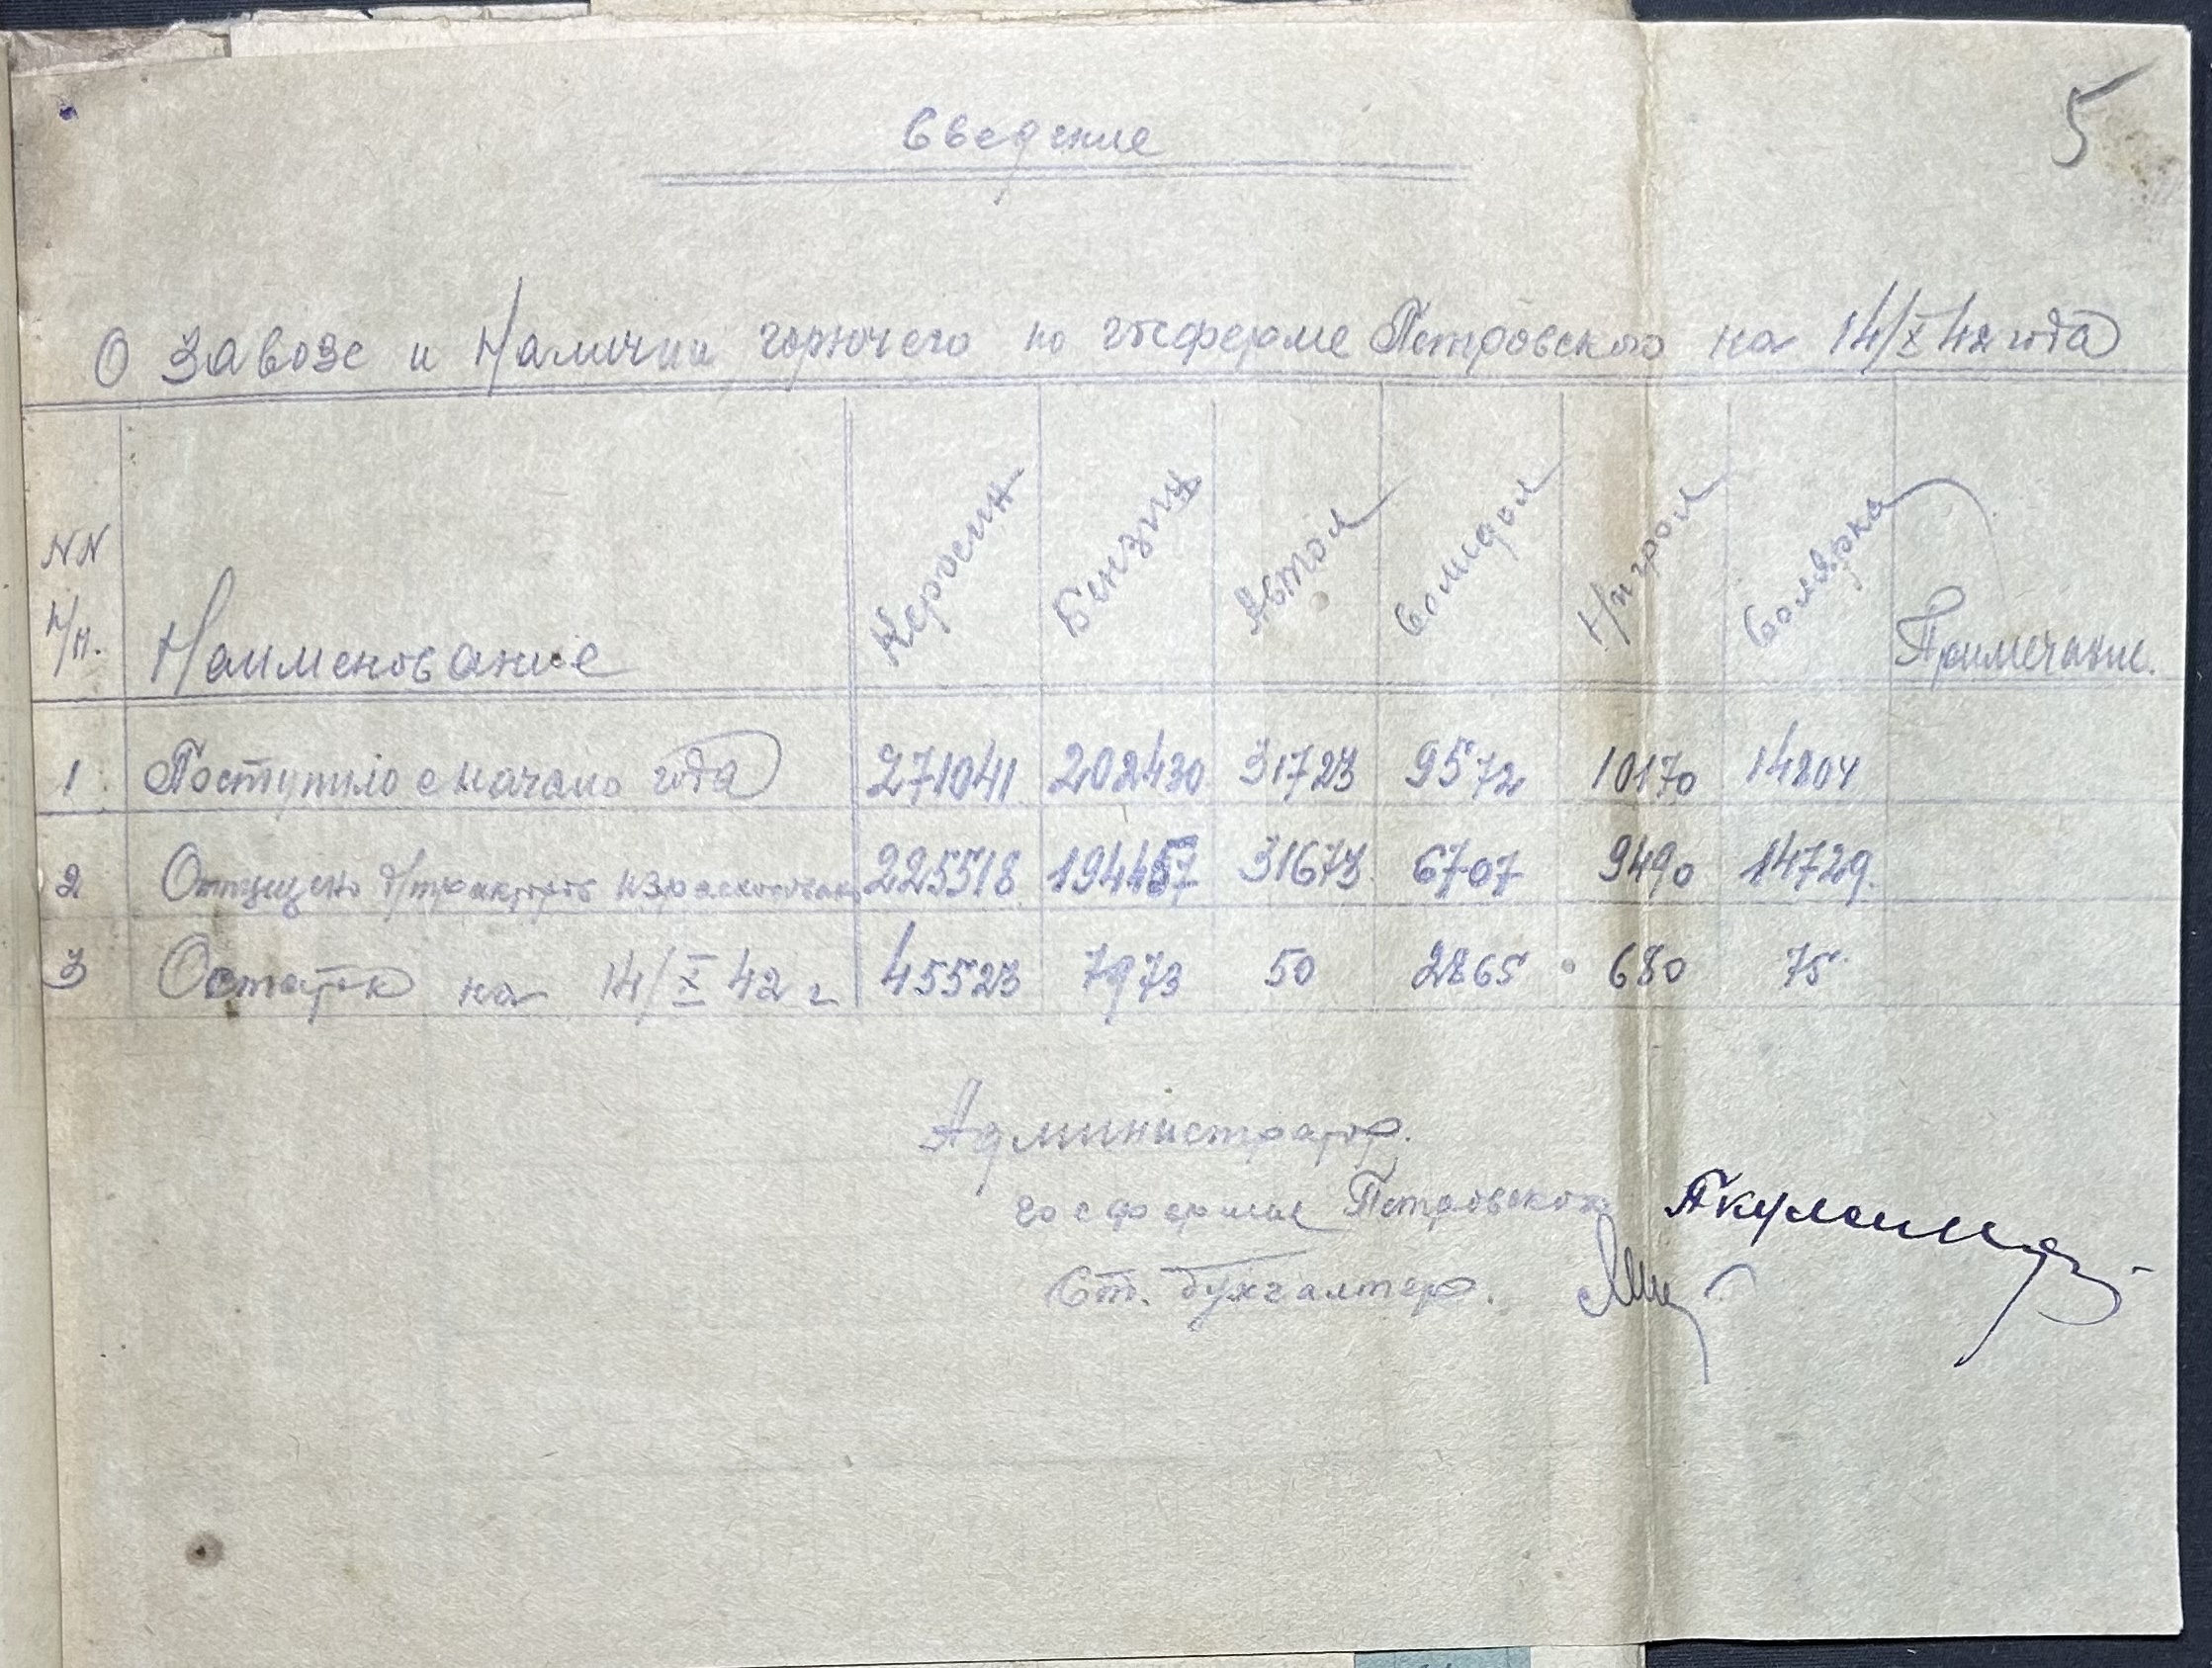 5
Сведение
О завозе и Наличии горючего по госферме Петровского на 14/X 42 года
NN п/п. Наименование Керосин Бензин Автол Солидол Нигрол Солярка Примечание.
1 Поступило с начало года 271041 202430 31723 9572 10170 14804
2 Отпущено д/тракторов израсходовано 225518 194457 31673 6707 9490 14729
3 Остаток на 14/X 42 г 45523 7973 50 2865 680 75
Администратор.
госферме Петровского
Ст. бухгалтер.